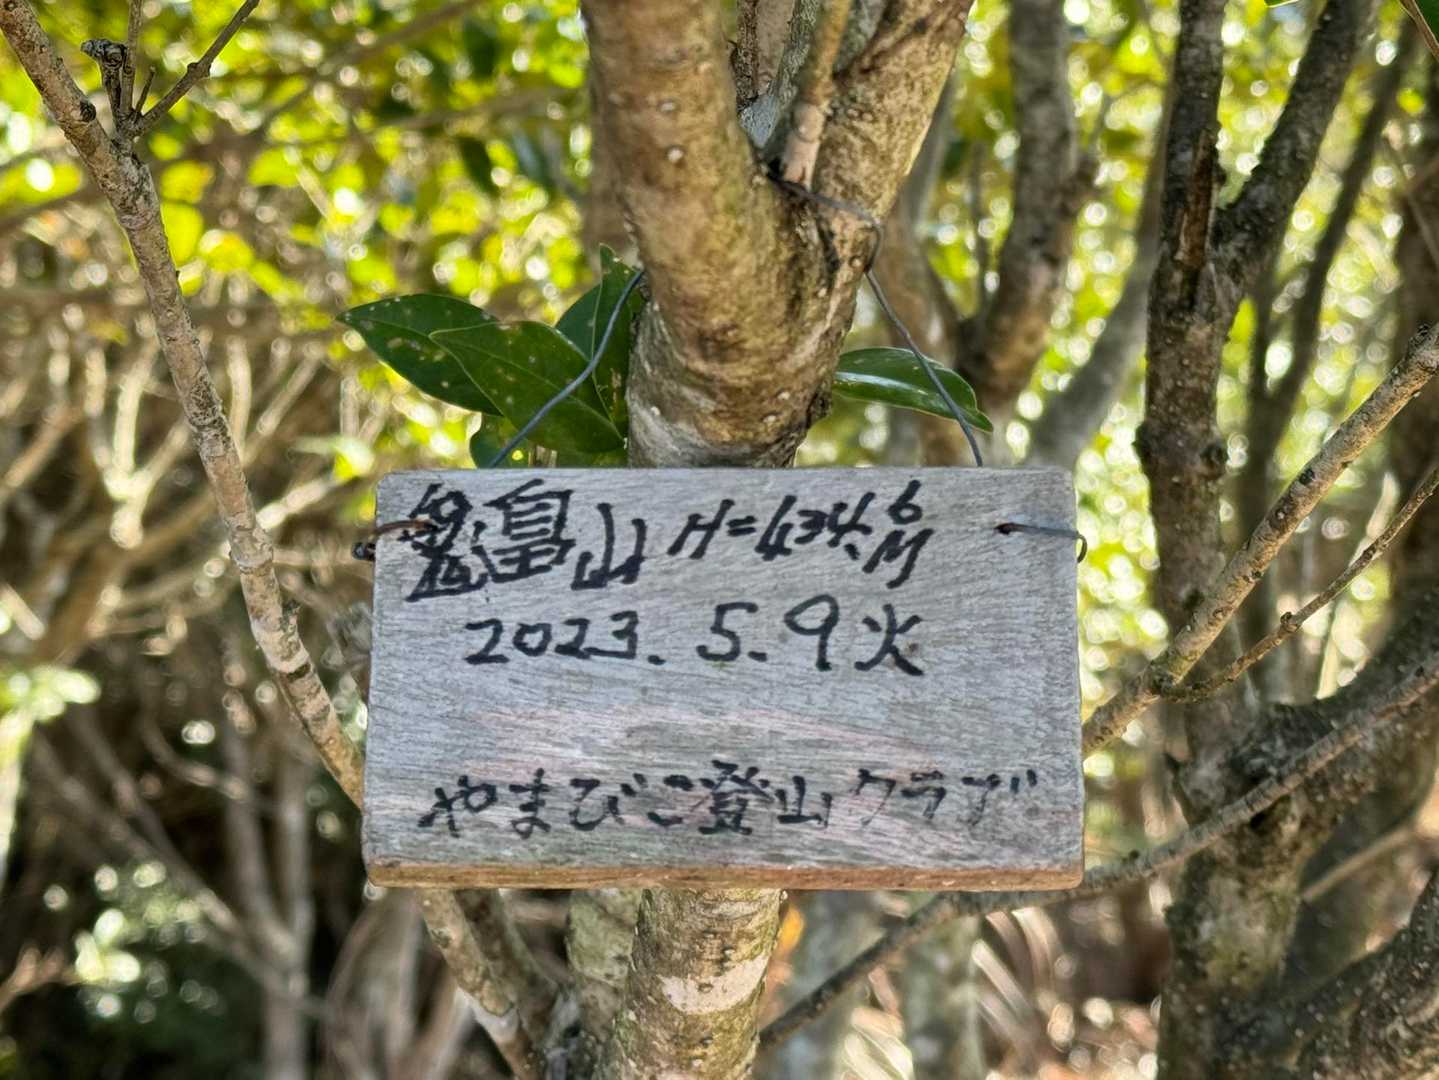 山 H=434.6M
2023.5.9火
やまびこ登山クラブ